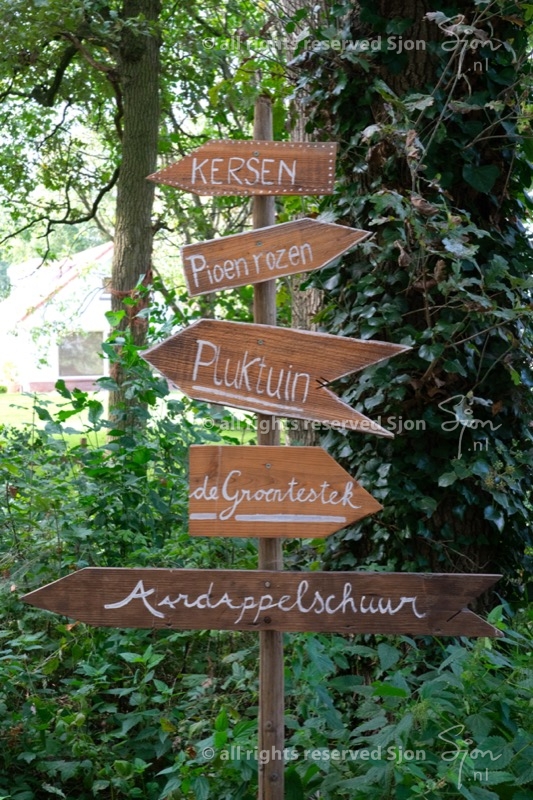 © all rights reserved Sjon
Sjon
.nl
KERSEN
Pioen rozen
Pluktuin
© all rights reserved Sjon
Sjon
.nl
de Groentestek
Aardappelschuur
© all rights reserved Sjon
Sjon
.nl